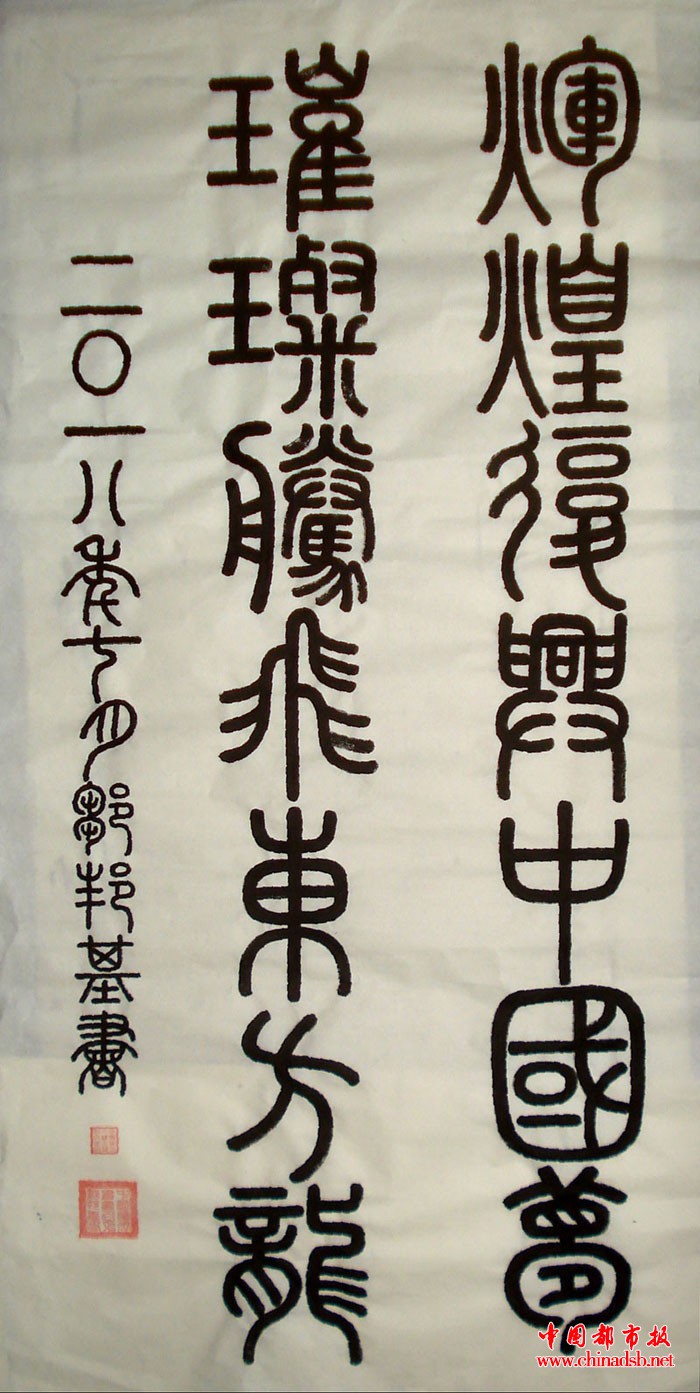 煇煌復興中國夢
璀璨騰飛東方龍
二〇一八年七月邦基書
中国都市报
www.chinadsb.net